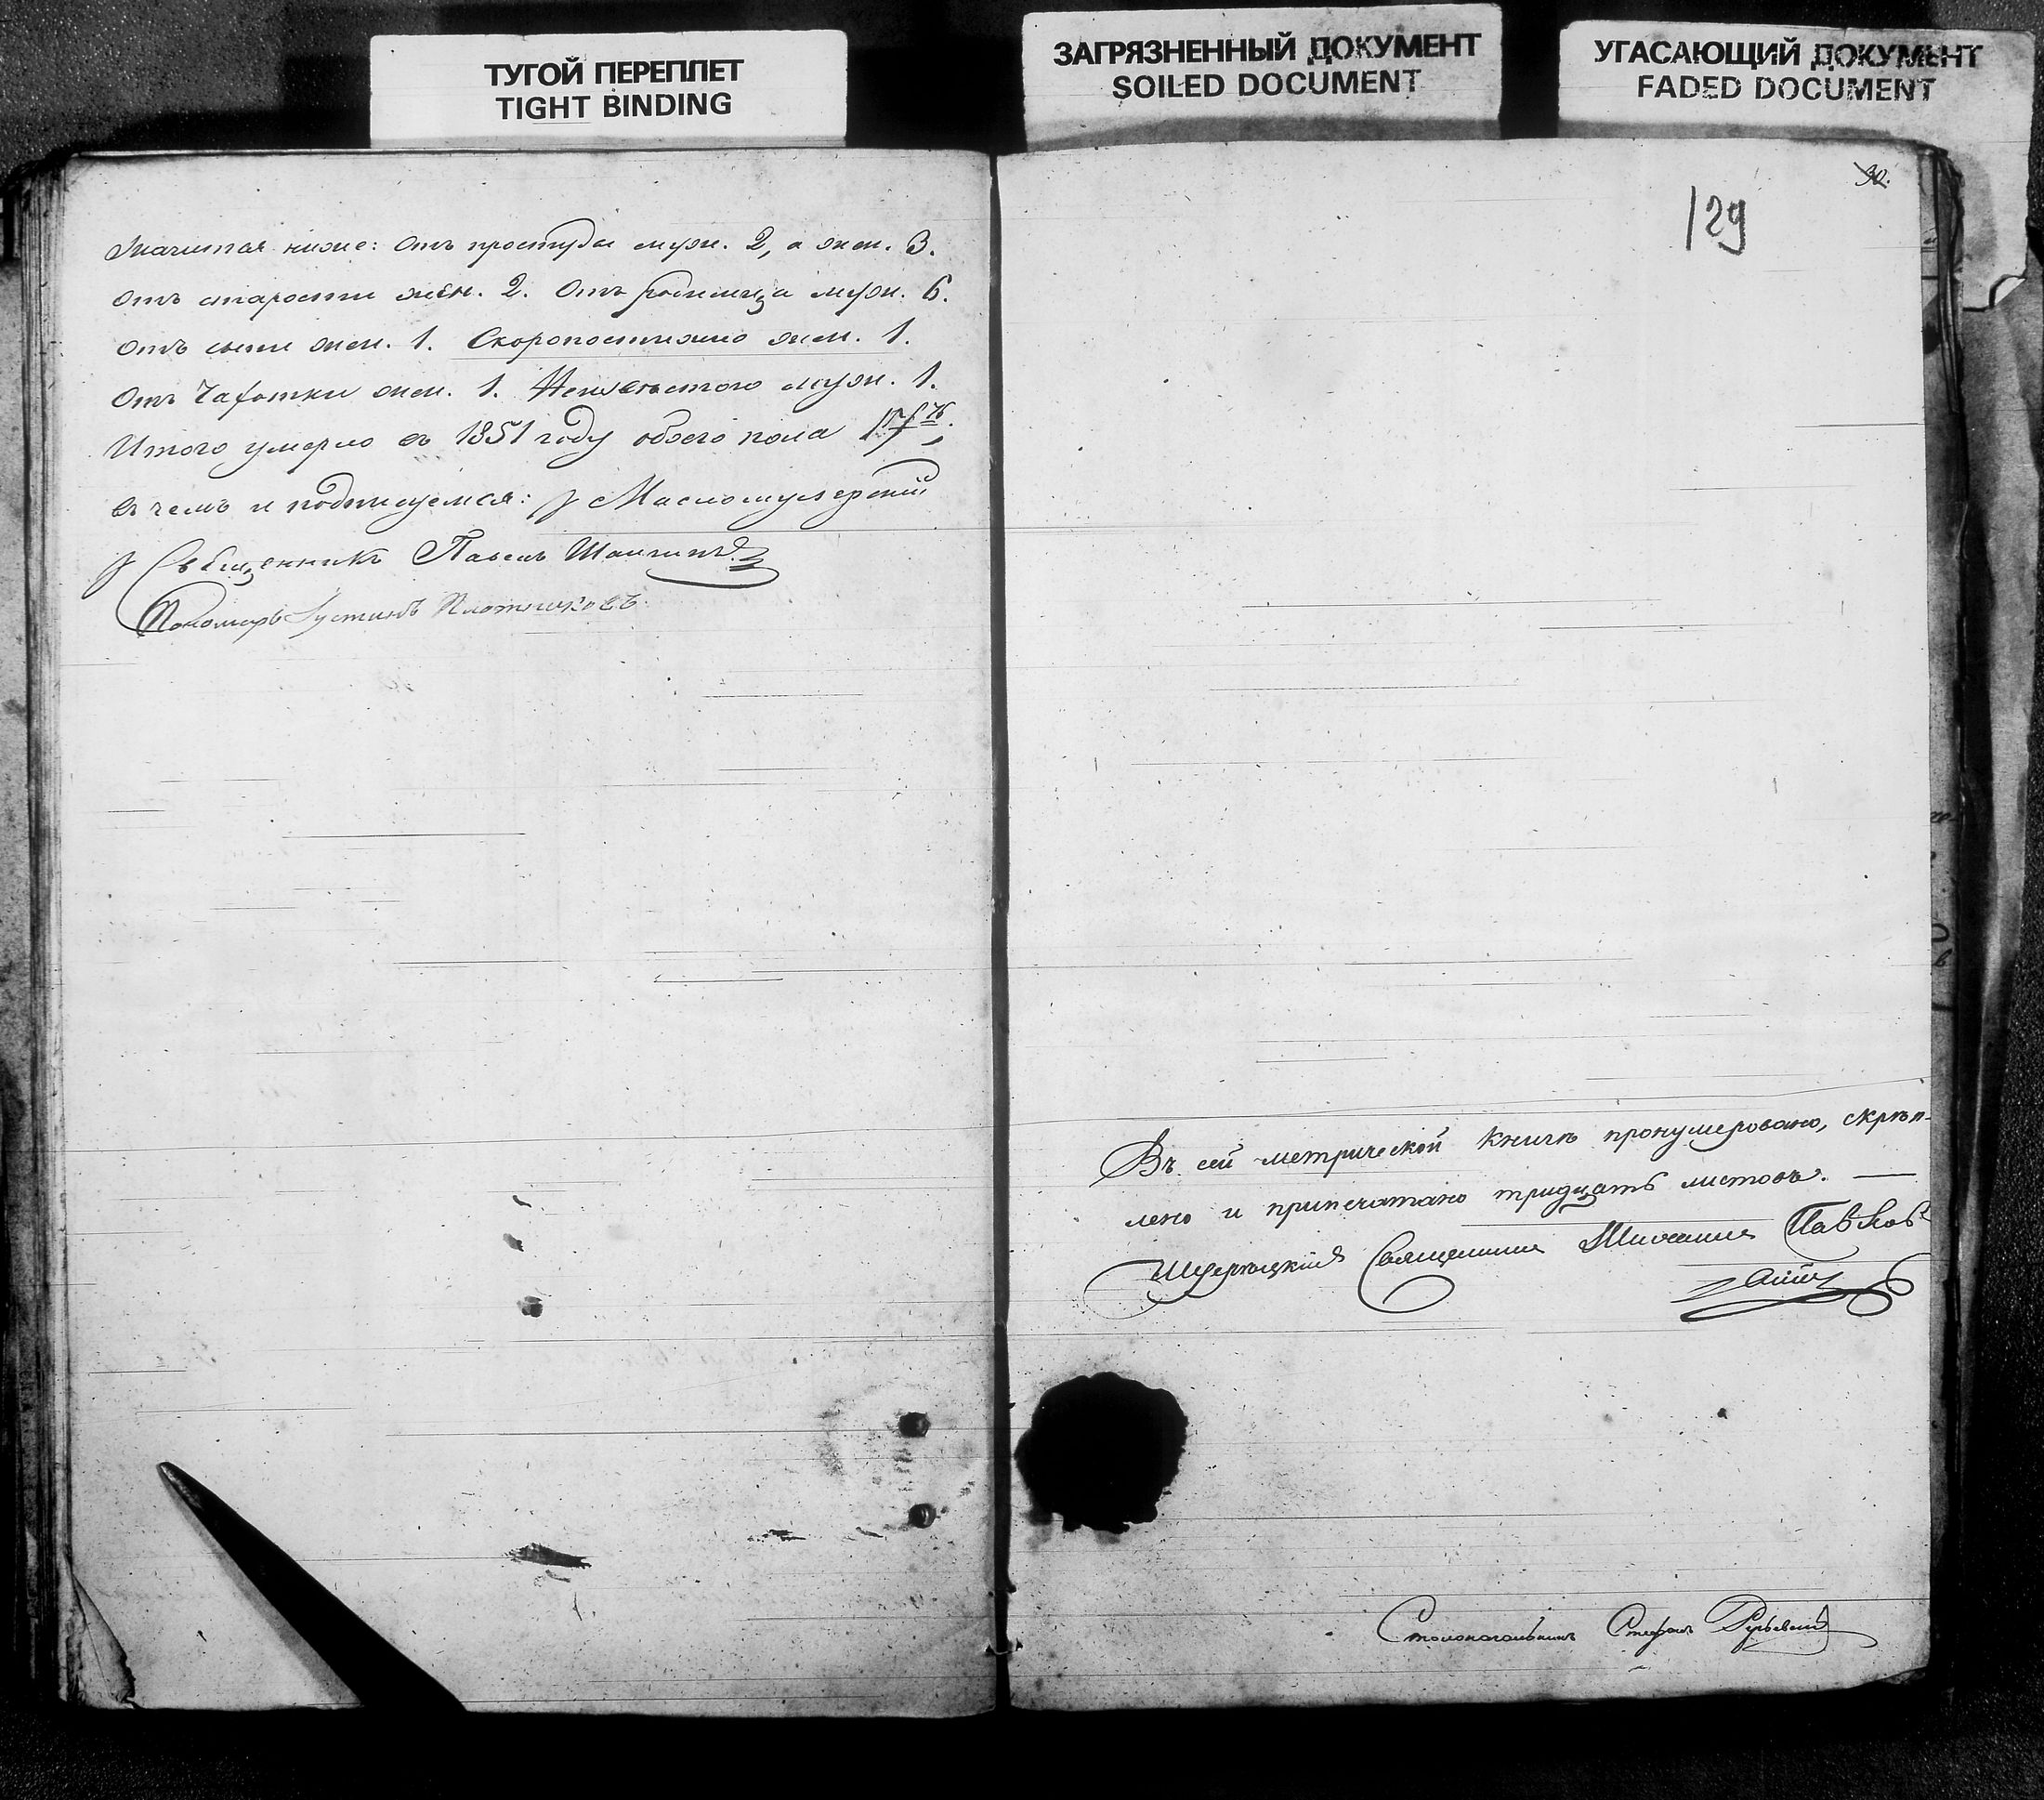 ТУГОЙ ПЕРЕПЛЕТ
TIGHT BINDING
ЗАГРЯЗНЕННЫЙ ДОКУМЕНТ
SOILED DOCUMENT
УГАСАЮЩИЙ ДОКУМЕНТ
FADED DOCUMENT
Значится ниже: отъ простуды муж. 2, а жен. 3.
отъ старости жен. 2. Отъ родимца муж. 6.
отъ сыпи жен. 1. Скоропостижно жен. 1.
Отъ Чахотки жен. 1. муж. 1.
Итого умерло въ 1851 году обоего пола
въ чемъ и подписуемся:
Священникъ Павелъ Шангинъ
Пономарь Іустинъ Плотниковъ
30.
129
Въ сей метрической книгѣ пронумеровано, скрѣп-
лено и припечатано тридцать листовъ. —
Священникъ Михаилъ
Столоначальникъ Стефанъ